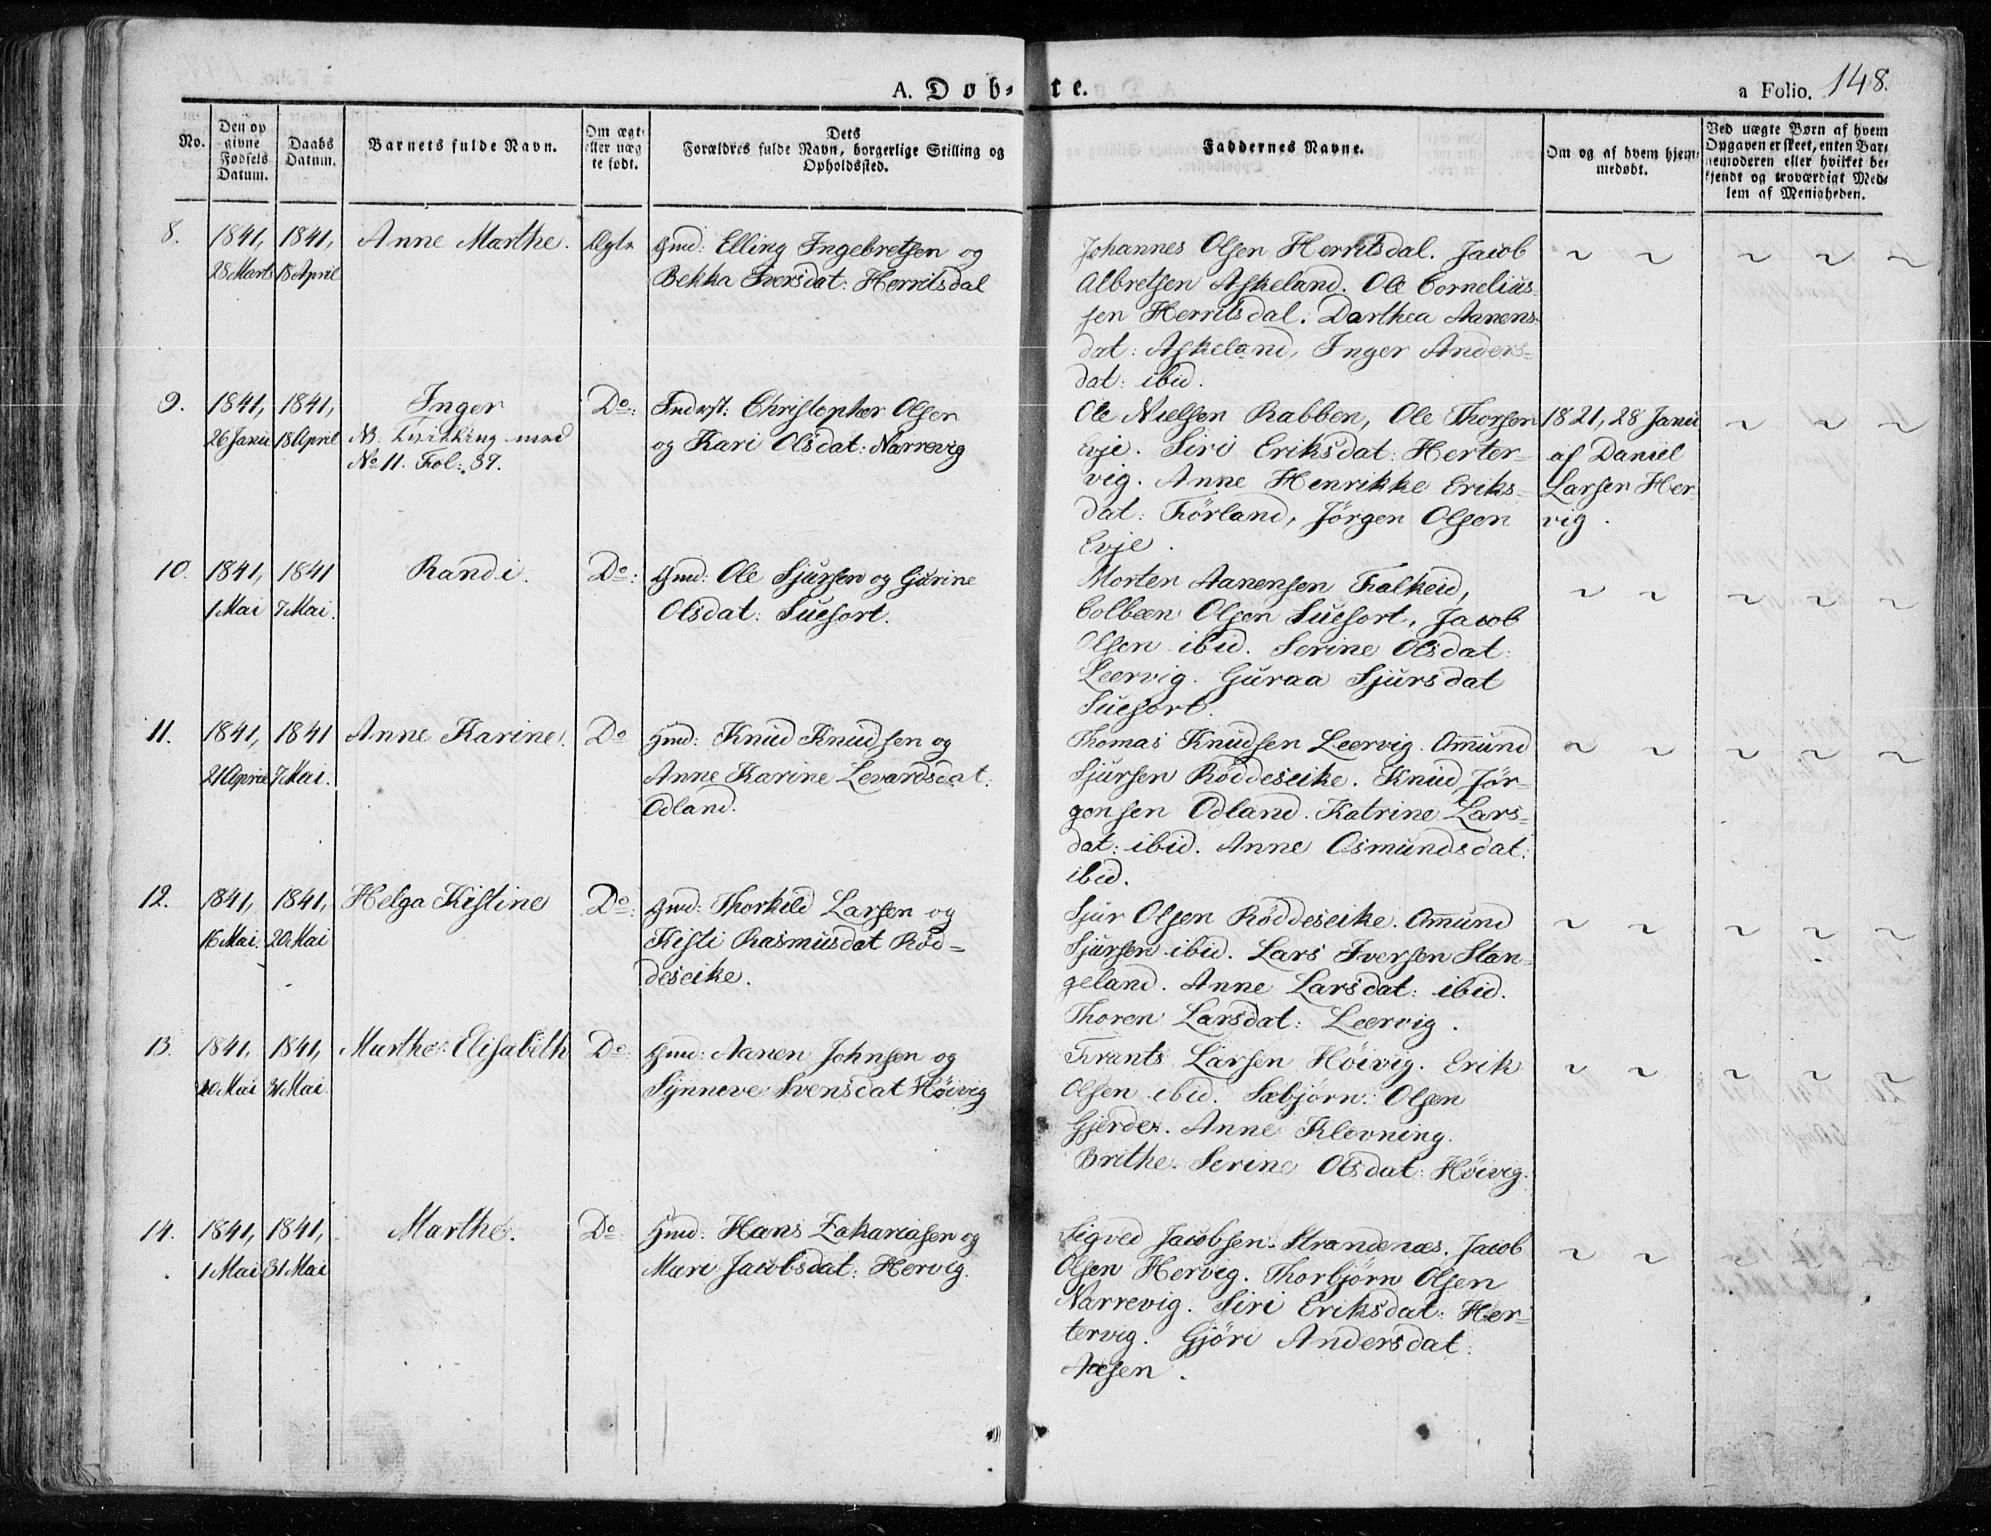 A. Døb-te.
a Folio. 148.
No.
Den op
givne
Fødsels
Datum.
Daabs
Datum.
Barnets fulde Navn.
Om ægt-
eller uæg
te født.
Dets
Forældres fulde Navn, borgerlige Stilling og
Opholdssted.
Faddernes Navne.
Om og af hvem hjem-
medøbt.
Ved uægte Børn af hvem
Opgaven er skeet, enten Bar-
nemoderen eller hvilket be-
kjendt og troværdigt Med-
lem af Menigheden.
8.
1841,
28 Marts
1841,
18 April
Anne Marthe.
Ægte
Gmd: Elling Ingebretsen og
Bekka Iversdat: Herritsdal
Johannes Olsen Herritsdal. Jacob
Albretsen Askeland. Ole Cornelius-
sen Herritsdal. Dorthea Aanens-
dat: Askeland, Inger Anders-
dat: ibid.
9.
1841,
26 Janu
1841,
18 April
Inger
NB: Tvilling med
No 11. Fol: 39.
Do:
Inderst: Christopher Olsen
og Kari Olsdat: Narrevig
Ole Nielsen Rabben, Ole Thorsen
Evje. Siri Eriksdat: Herter-
vig. Anne Henrikke Eriks-
dat: Förland, Jörgen Olsen
Evje.
1821, 28 Janu
af Daniel
Larsen Her
vig.
10.
1841,
1 Mai
1841
7 Mai.
Randi.
Do:
Gmd: Ole Sjursen og Gurine
Olsdat: Suesort.
Morten Aanensen Falkeid,
Colbeen Olsen Suesort, Jacob
Olsen ibid. Serine Olsdat:
Leervig. Guraa Sjursdat
Suesort.
11.
1841,
21 April
1841
7 Mai.
Anne Karine.
Do
Gmd: Knud Knudsen og
Anne Karine Levardsdat:
Odland.
Thomas Knudsen Leervig. Omund
Sjursen Röddeseike. Knud Jör-
gensen Odland. Katrine Lars-
dat: ibid. Anne Osmundsdat:
ibid.
12.
1841,
16 Mai.
1841,
20 Mai
Helga Kistine
Do:
Gmd: Thorkild Larsen og
Kisti Rasmusdat Röd-
deseike.
Sjur Olsen Röddeseike. Omund
Sjursen ibid. Lars Iversen Stan-
geland. Anne Larsdat: ibid.
Thoren Larsdat: Leervig.
13.
1841,
20 Mai
1841,
31 Mai.
Marthe Elisabeth
Do:
Gmd: Aanen Johnsen og
Synneve Svensdat Höivig
Frants Larsen Höivig. Erik
Olsen ibid. Sæbjörn Olsen
Gjerde. Anne Klovning.
Brithe Serine Olsdat: Höivig.
14.
1841,
1 Mai
1841,
31 Mai
Marthe.
Do:
Gmd: Hans Zakariasen og
Mari Jacobsdat: Hervig.
Sigved Jacobsen Strandenæs. Jacob
Olsen Hervig. Thorbjörn Olsen
Narrevig. Siri Eriksdat: Her-
tervig. Gjöri Andersdat:
Aasen.